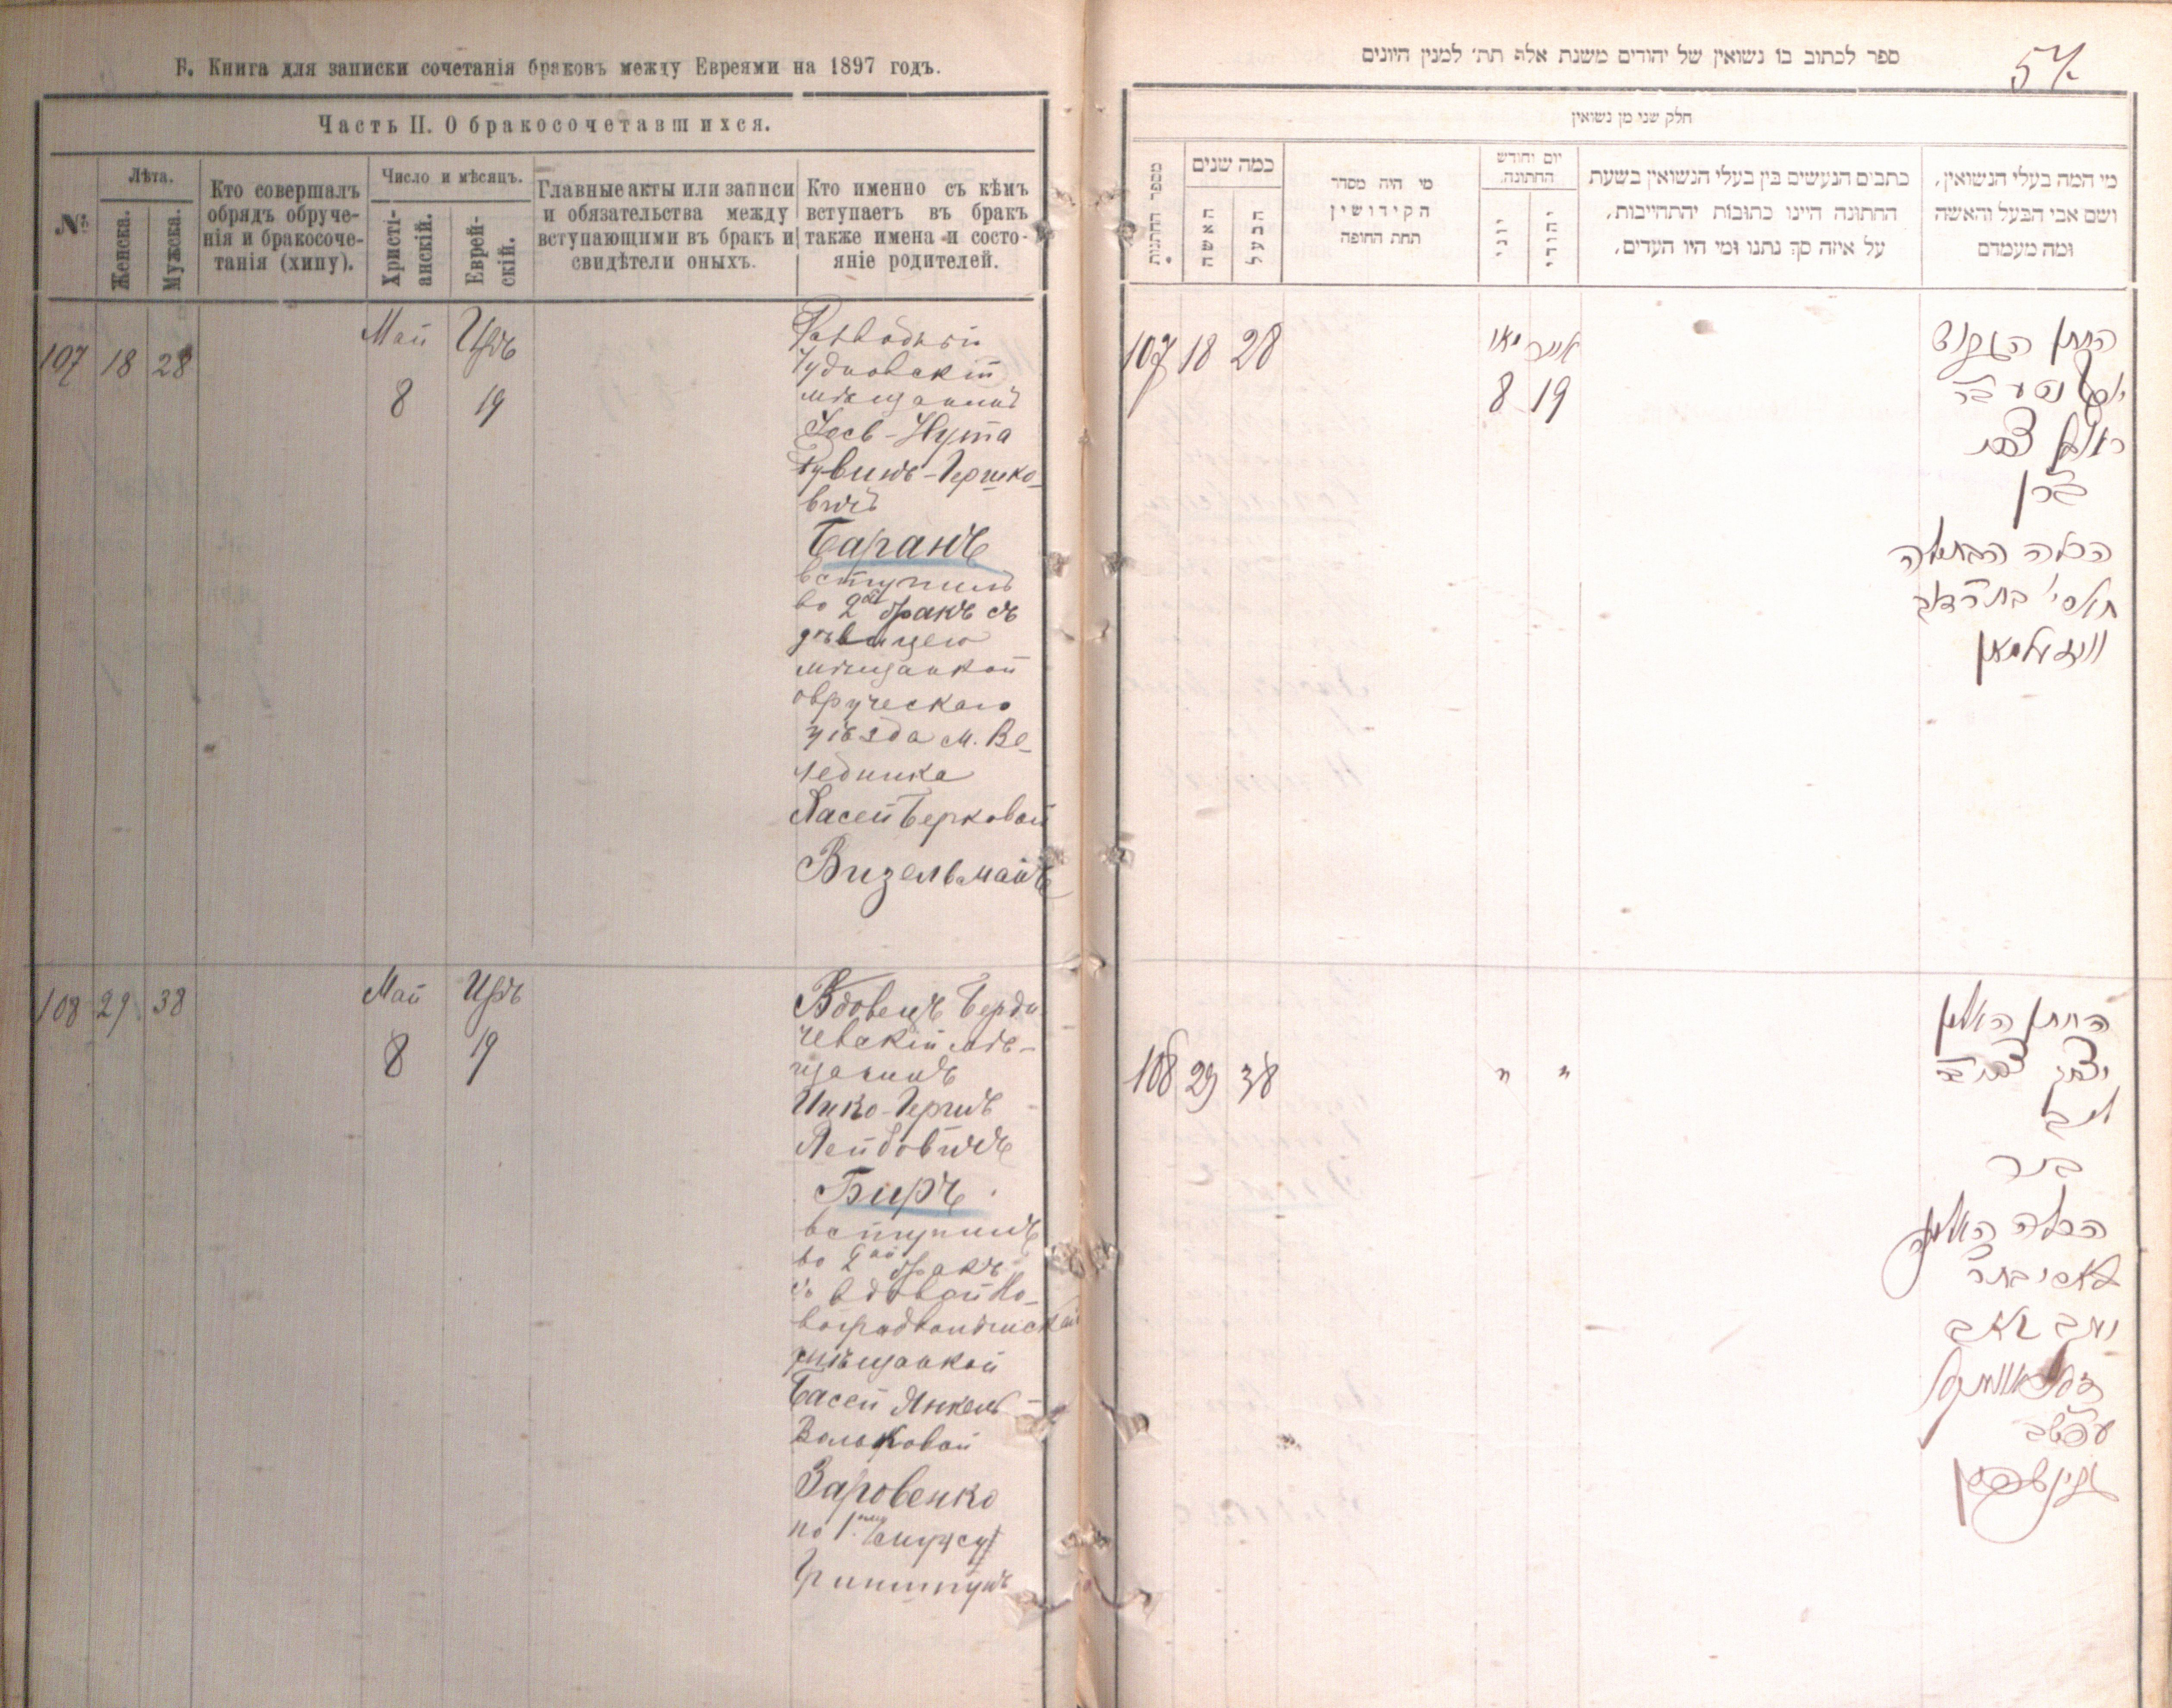 Б. Книга для записки сочетанія браковъ между Евреями на 1897 годъ.
Часть II. О бракосочетавшихся.
№
Лѣта.
Женска.
Мужска.
Кто совершалъ
обрядъ обруче-
нія и бракосоче-
танія (хипу).
Число и мѣсяцъ.
Христі-
анскій.
Еврей-
скій.
Главные акты или записи
и обязательства между
вступающими въ бракъ и
свидѣтели оныхъ.
Кто именно съ кѣмъ
вступаетъ въ бракъ
также имена и состо-
яніе родителей.
107 18 28
Май Иръ
8 19
Разводный
Чудновскій
мѣщанинъ
Іось-Нута
Рувинъ-Гершко-
вичъ
Баранъ
вступилъ
во 2ой бракъ съ
дѣвицею
мѣщанкой
овручскаго
уѣзда м. Ве-
ледника
Хасей Берковой
Визельманъ
108 29 38
Май Иръ
8 19
Вдовецъ Берди
чевскій мѣ-
щанинъ
Ицко-Гершъ
Лейбовичъ
Биръ
вступилъ
во 2ой бракъ
съ вдовой Но-
воградволынской
мѣщанкой
Басей Янкель-
Вольковой
Заровенко
по 1му мужу
Гринштунъ
ספר לכתוב בו נשואין של יהודים משנת אלף תת׳ למנין היונים
57.
חלק שני מן נשואין
מספר החתונות
כמה שנים
האשה
הבעל
מי היה מסדר
הקידושין
תחת החופה
יום וחודש
החתונה.
יוני
יהודי
כתבים הנעשים בין בעלי הנשואין בשעת
החתונה היינו כתובות והתחייבות,
על איזה סך נתנו ומי היו העדים,
מי המה בעלי הנשואין,
ושם אבי הבעל והאשה
ומה מעמדם
107 18 28
מאי אייר
8 19
החתן הגרוש
יוסף נטע בר
ראובן צבי
בארן
הכלה הבתולה
חאסי׳ בת ר׳ דוב
וויזעלמאן
108 29 38
" "
החתן האלמן
יצחק צבי בר
ליב
ביר
הכלה האלמנה
באסי בת ר׳
יעקב וואלב